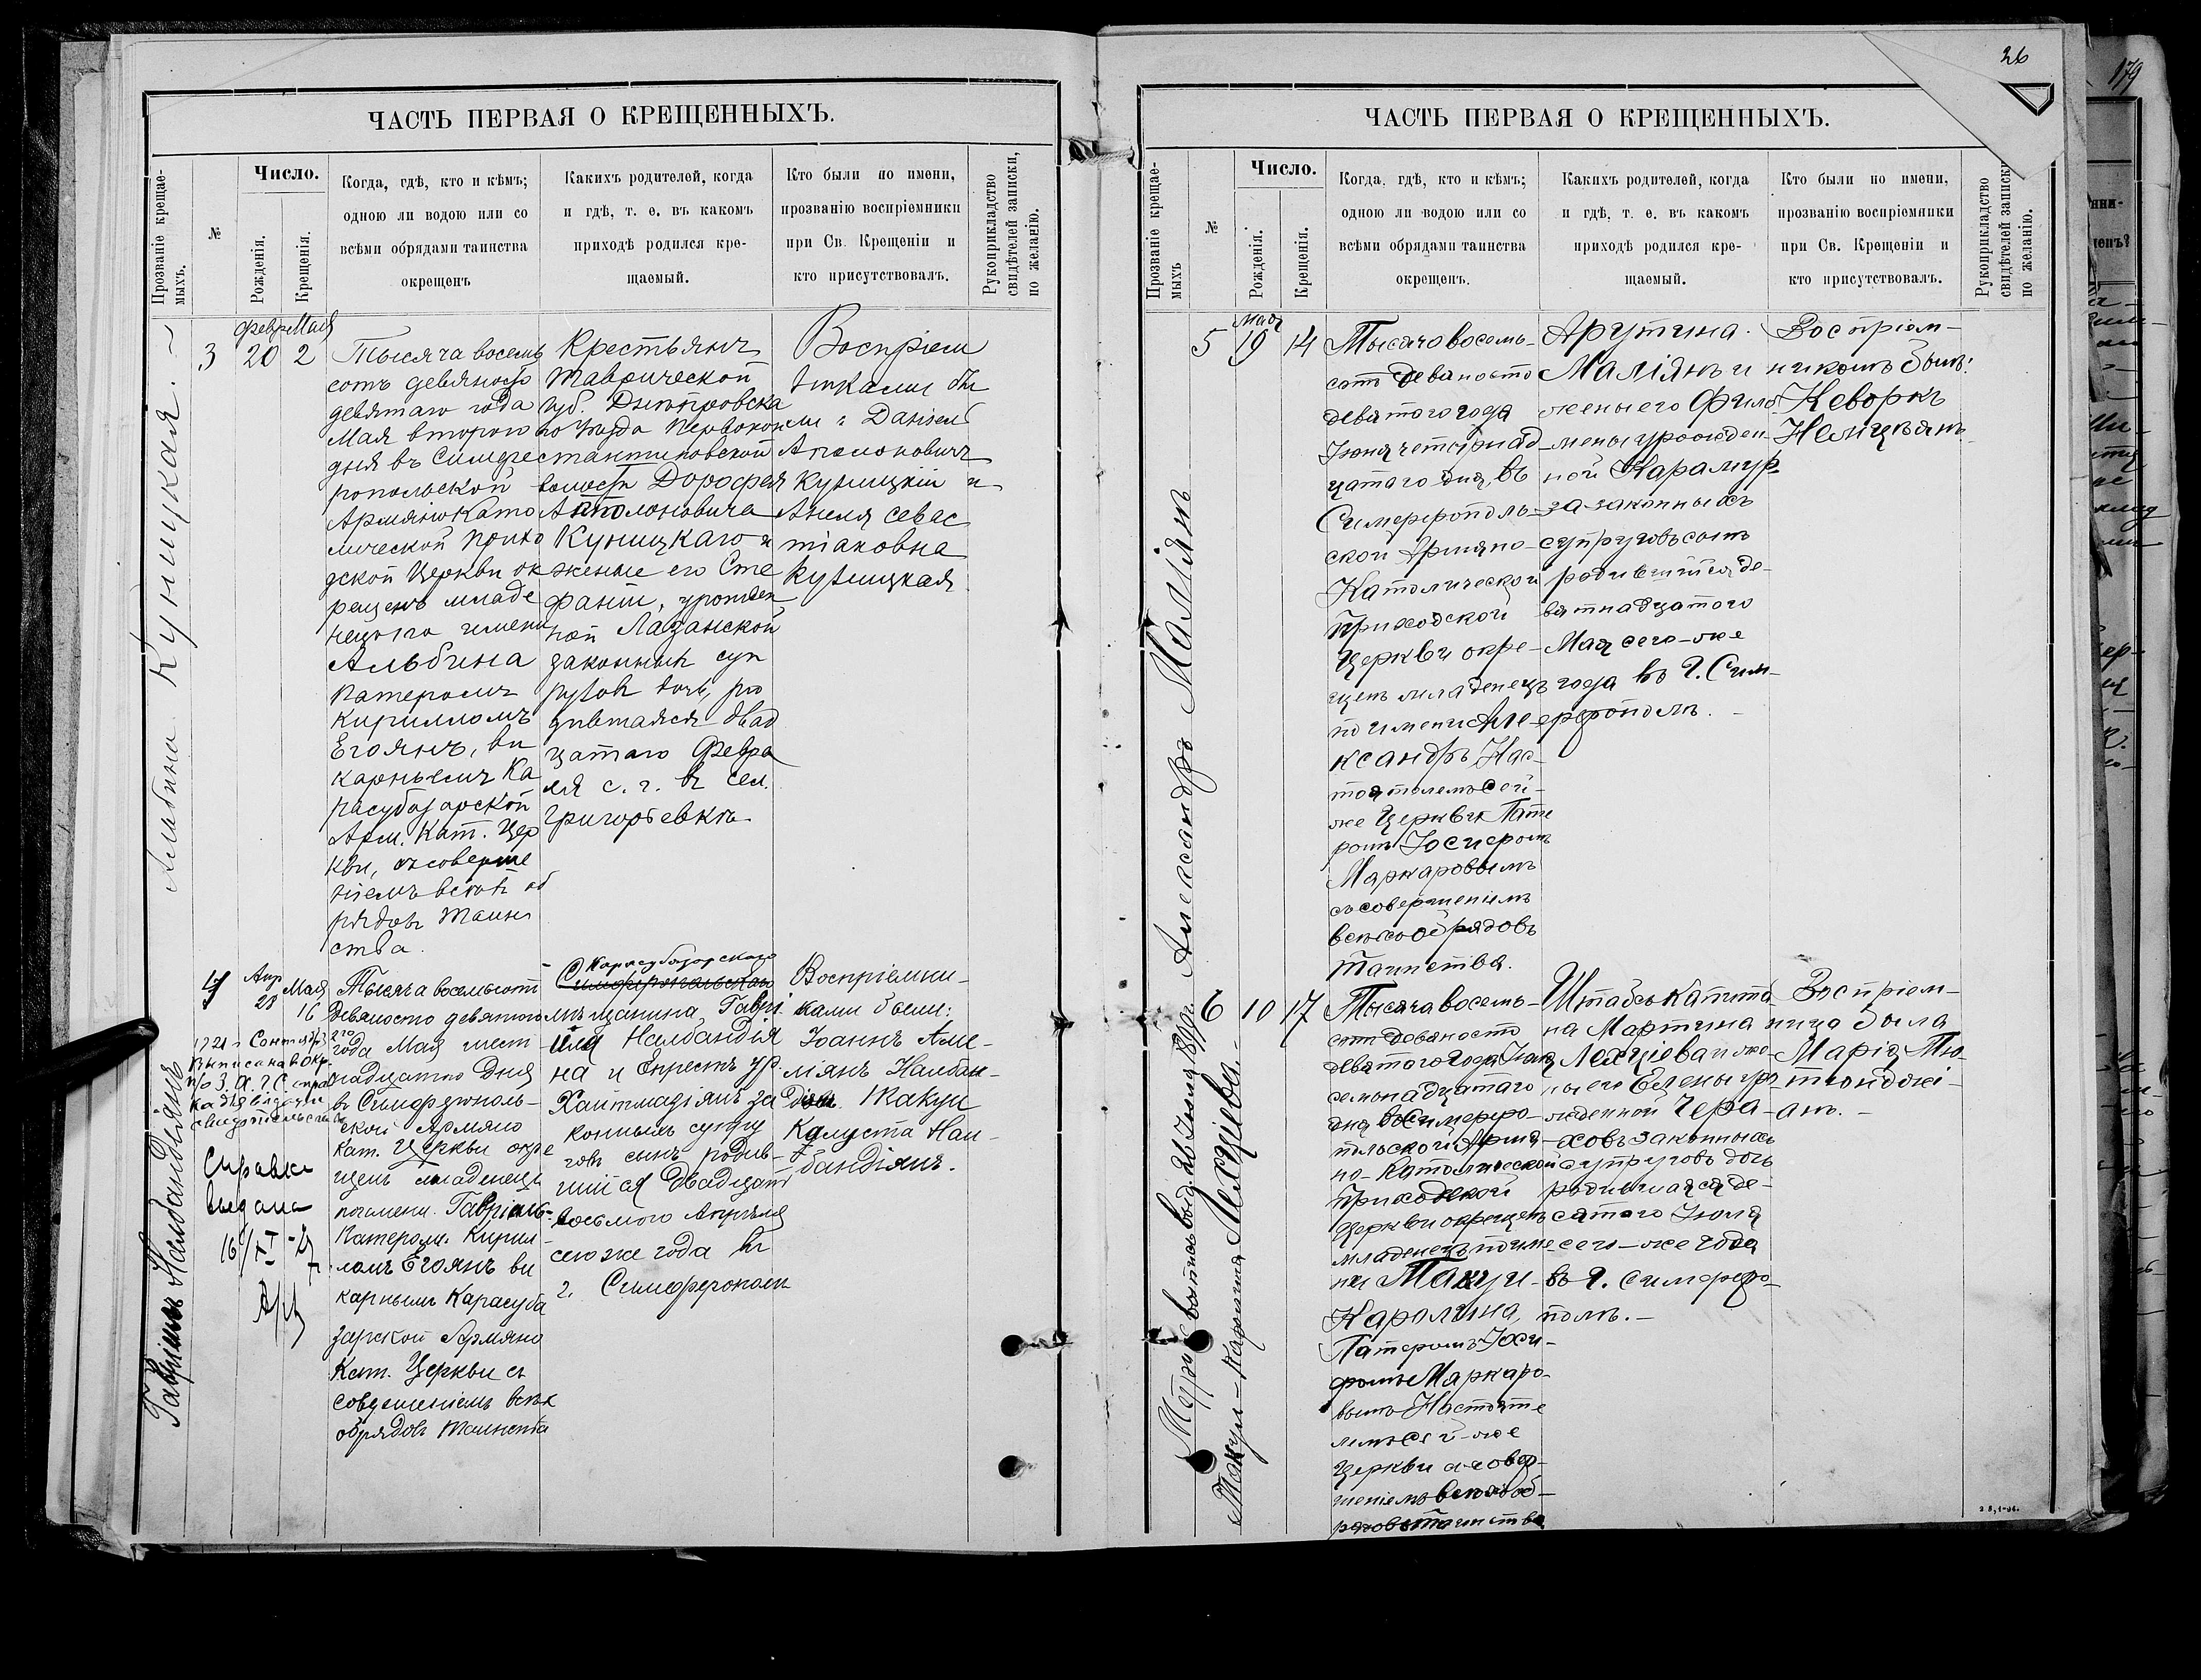 ЧАСТЬ ПЕРВАЯ О КРЕЩЕННЫХЪ.
Прозваніе крещае-
мыхъ.
№
Число.
Рожденія.
Крещенія.
Когда, гдѣ, кто и кѣмъ;
одною ли водою или со
всѣми обрядами таинства
окрещенъ
Какихъ родителей, когда
и гдѣ, т. е. въ какомъ
приходѣ родился кре-
щаемый.
Кто были по имени,
прозванію воспріемники
при Св. Крещеніи и
кто присутствовалъ.
Рукоприкладство
свидѣтелей записки,
по желанію.
Альбина Куницкая.
3
Февр
20
Мая
2
Тысяча восемь
сотъ девяносто
девятаго года
Мая второго
дня въ Симфе
ропольской
Армяно Като
лической прихо
дской Церкви ок
рещенъ младе
нецъ по имени
Альбина
Патеромъ
Кирилломъ
Егоянъ, ви
карнымъ Ка
расубазарской
Арм. Кат. Цер
кви, съ соверше
ніемъ всѣхъ об
рядовъ Таин
ства.
Крестьянъ
Таврической
Губ. Днѣпровска
го уѣзда Первокон
стантиновской
волости Дорофея
Апполоновича
Куницкаго и
жены его Сте
фаніи, урожден
ной Лазанской
законныхъ суп
руговъ дочь, ро
дившаяся двад
цатаго Февра
ля с. г. въ сел.
Григорьевкѣ
Воспріем
никами бы
ли: Даніелъ
Аполоновичъ
Куницкій и
Анеля Севас
тіановна
Куницкая
Гавріилъ Налбандіянъ
4
Апр
28
Мая
16
Справка
выдана
16/XI -27
Тысяча восемьсотъ
девяносто девятого
года Мая шест
надцатаго Дня
въ Симферополь-
ской Армяно
Кат. Церкви окре
щенъ младенецъ
по имени Гавріилъ
Патеромъ Кирил-
ломъ Егоянъ ви
карнымъ Карасуба
зарской Армяно
Кат. Церкви съ
совершеніемъ всѣхъ
обрядовъ Таинства
Карасубазарскаго
Симферопольскаго
мѣщанина Гаврі
ила Налбандія
на и Екрестъ ур.
Хаитмазіянъ за
конныхъ супру
говъ сынъ родив-
шійся двадцать
восьмого Апрѣля
сего же года въ
г. Симферополѣ
Воспріемни-
ками были:
Іоаннъ Аме-
ліянъ Налбан-
діян Такуи
Калуста Нал-
бандіянъ.
26
ЧАСТЬ ПЕРВАЯ О КРЕЩЕННЫХЪ.
Прозваніе крещае-
мыхъ
№
Число.
Рожденія.
Крещенія.
Когда, гдѣ, кто и кѣмъ;
одною ли водою или со
всѣми обрядами таинства
окрещенъ.
Какихъ родителей, когда
и гдѣ, т. е. въ какомъ
приходѣ родился кре-
щаемый.
Кто были по имени,
прозванію воспріемники
при Св. Крещеніи и
кто присутствовалъ.
Рукоприкладство
свидѣтелей записки
по желанію.
Александръ Маліянъ
5
Мая
19
14
Тысячо восемь-
сотъ девяносто
девятого года
Іюня четырнад
цатаго дня, въ
Симферополь-
ской Армяно-
Католической
Приходской
Церкви окре-
щенъ младенецъ
по имени Але
ксандръ Нас-
тоятелемъ сей-
же Церкви Пате
ромъ Іосифомъ
Маркаровымъ
съ совершеніемъ
всѣхъ обрядовъ
Таинства.
Арутина
Маліянъ и
жены его Фило
мены урожден-
ной Карамур
за законныхъ
супруговъ сынъ
родившійся де-
вятнадцатого
Мая сего-же
года въ г. Сим-
ферополѣ.
Воспріем-
никомъ былъ:
Кеворкъ
Немцъянъ
Такуи-Каролина Лехціева.
6
10
17
Тысяча восемь-
сотъ девяносто
девятого года Іюля
семьнадцатаго
дня въ Симферо-
польской Армя-
но-Католической
Приходской
Церкви окрещенъ
младенецъ по име
ни Такуи-
Каролина,
Патеромъ Іоси-
фомъ Маркаро-
вымъ Настояте
лемъ сей-же
Церкви с совер-
шеніемъ всѣхъ об-
рядовъ Таинства
Штабсъ Капита
на Мартина
Лехціева и же-
ны его Елены уро
жденной Чера-
ховъ законныхъ
супруговъ дочь
родившаяся де-
сятого Іюля
сего-же года
въ г. Симферо-
полѣ.-
Воспріем-
ница была
Марія Тю-
тюнджі-
анъ.-
179